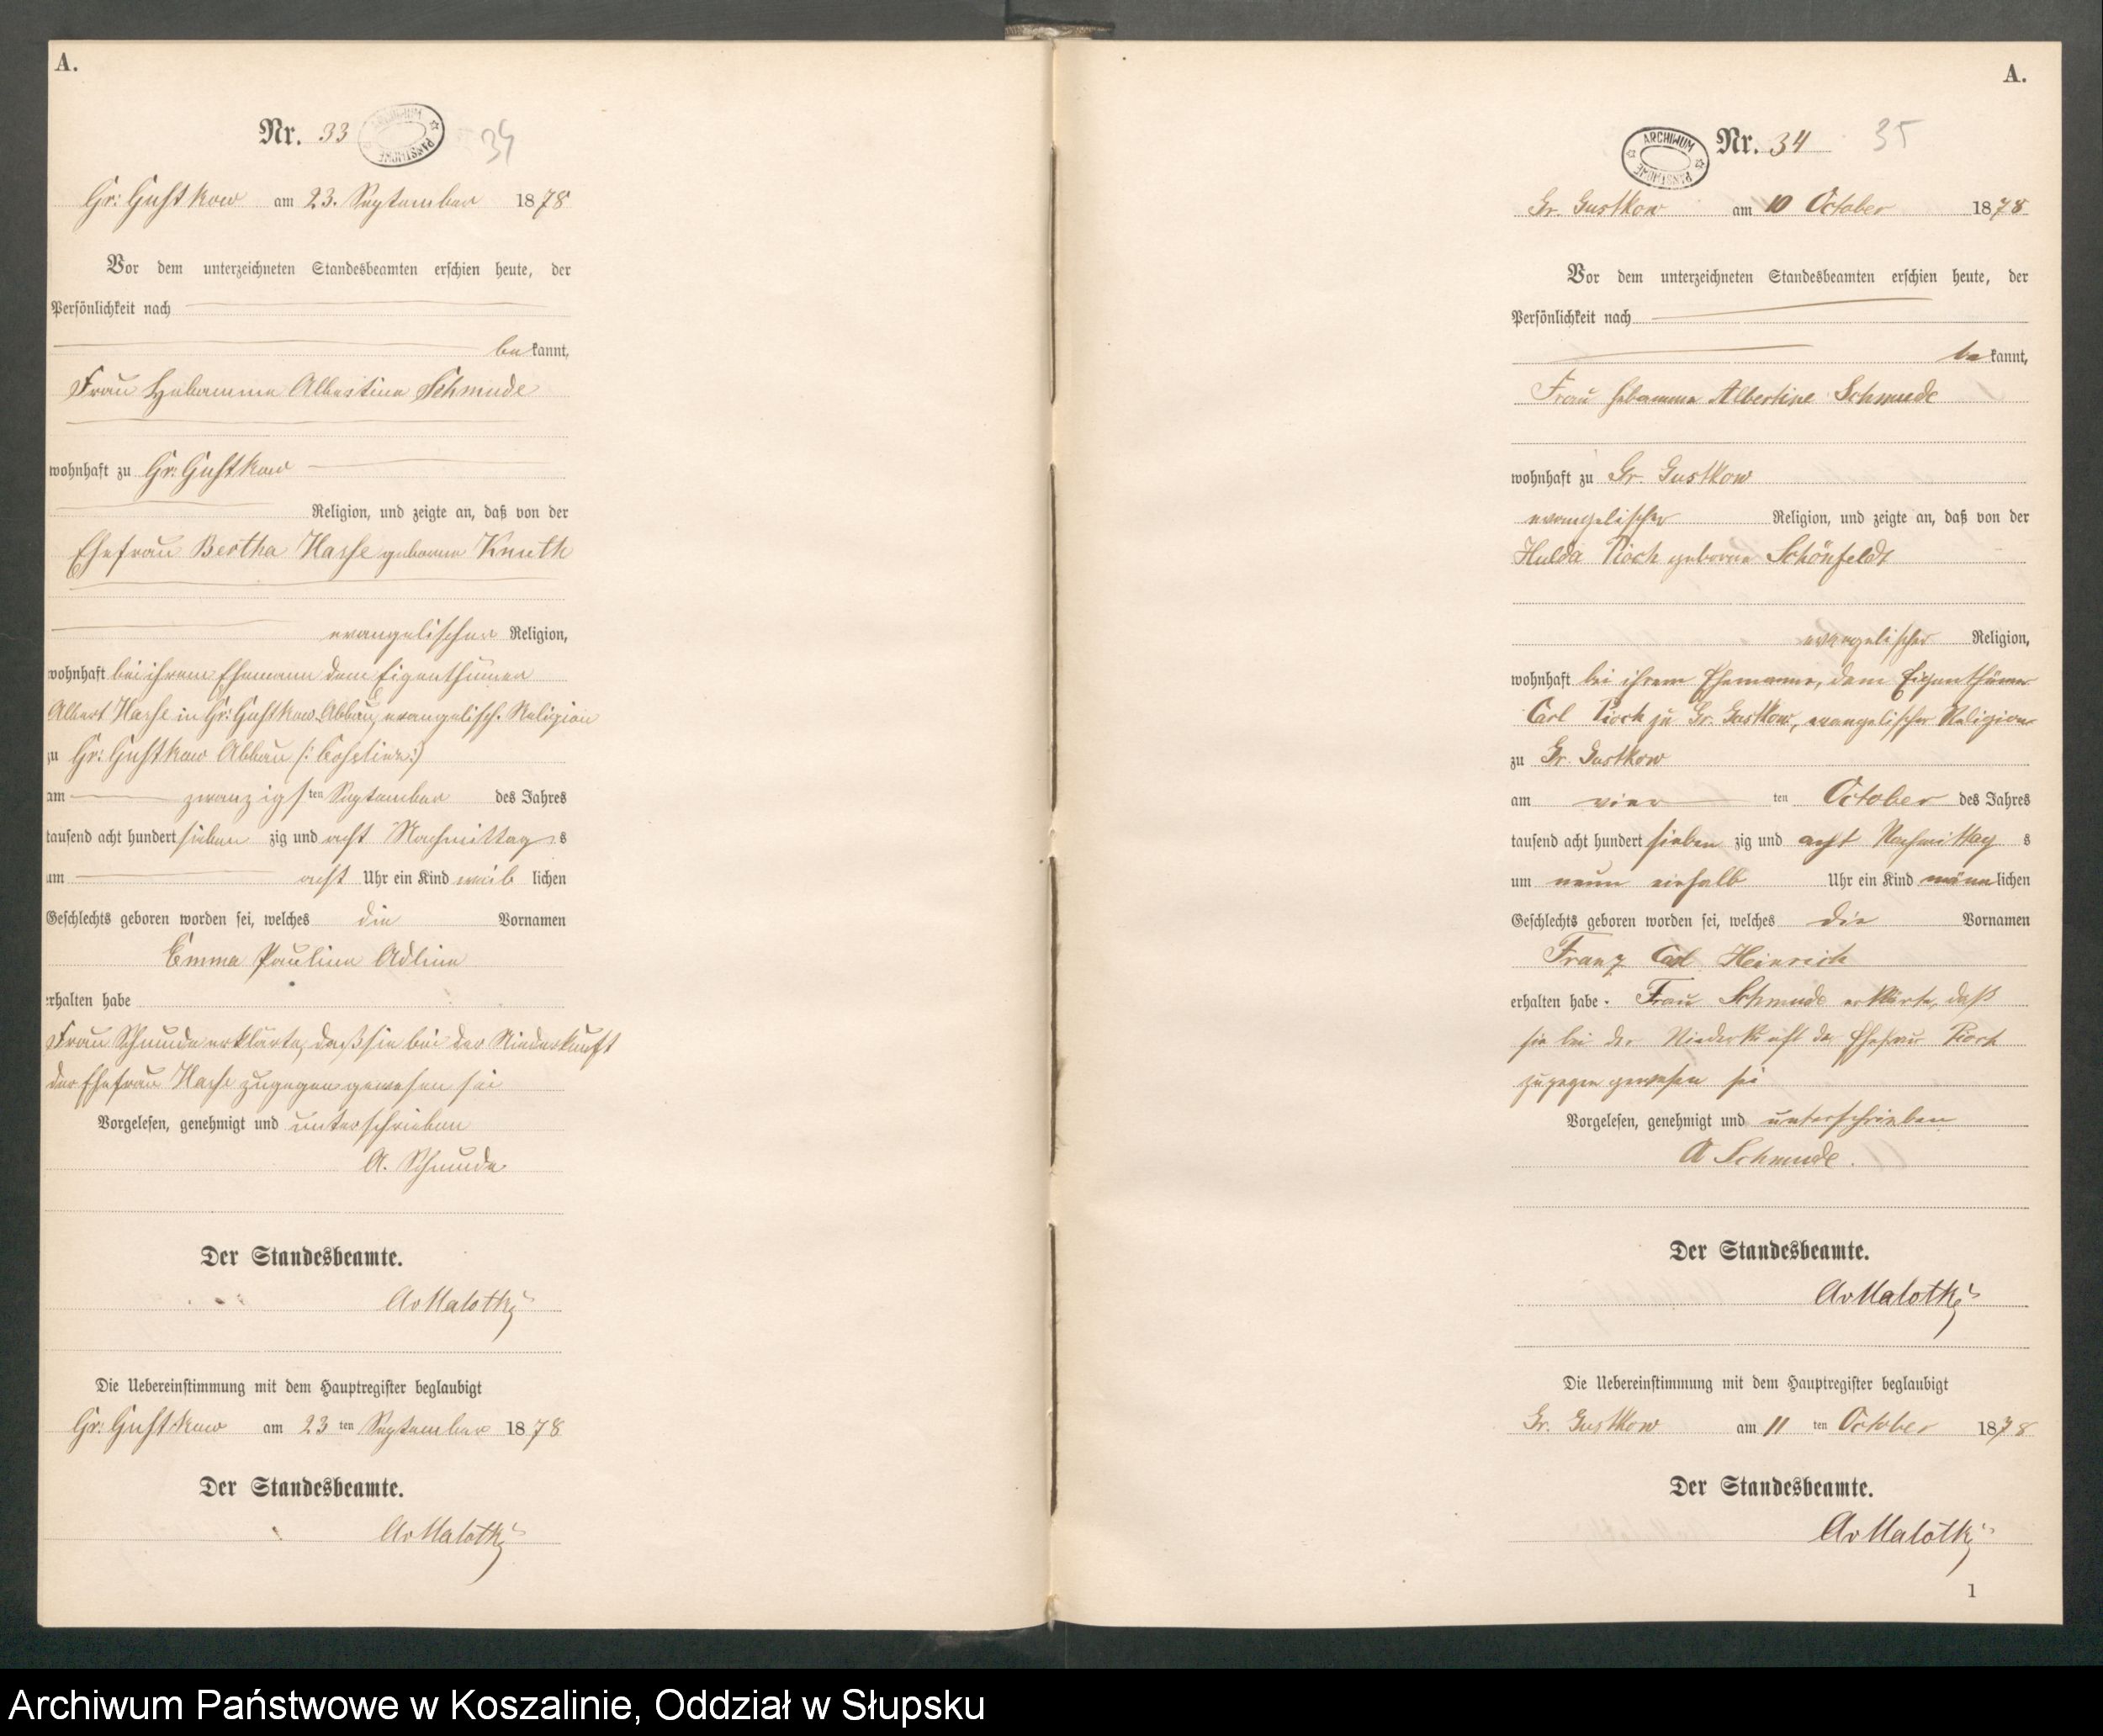 A.
Nr. 33
ARCHIWUM PAŃSTWOWE
34
Gr: Gustkow am 23. September 1878
Vor dem unterzeichneten Standesbeamten erschien heute, der
Persönlichkeit nach
bekannt,
Frau Hebamme Albertine Schmude
wohnhaft zu Gr: Gustkow
Religion, und zeigte an, daß von der
Ehefrau Bertha Hasse geborne Knuth
evangelischer Religion,
wohnhaft bei ihrem Ehemann dem Eigenthümer
Albert Hasse in Gr: Gustkow Abbau, evangelisch. Religion
zu Gr: Gustkow Abbau
am zwanzigsten September des Jahres
tausend acht hundert siebenzig und acht Nachmittags
um acht Uhr ein Kind weiblichen
Geschlechts geboren worden sei, welches die Vornamen
Emma Pauline Adline
erhalten habe
Frau Schmude erklärte, daß sie bei der Niederkunft
der Ehefrau Hasse zugegen gewesen sei
Vorgelesen, genehmigt und unterschrieben
A. Schmude
Der Standesbeamte.
AvMalotki
Die Uebereinstimmung mit dem Hauptregister beglaubigt
Gr: Gustkow am 23ten September 1878
Der Standesbeamte.
AvMalotki
A.
ARCHIWUM PAŃSTWOWE
Nr. 34
35
Gr. Gustkow am 10 October 1878
Vor dem unterzeichneten Standesbeamten erschien heute, der
Persönlichkeit nach
bekannt,
Frau Hebamme Albertine Schmude
wohnhaft zu Gr. Gustkow
evangelischer Religion, und zeigte an, daß von der
Hulda Pioch geborne Schönfeldt
evangelischer Religion,
wohnhaft bei ihrem Ehemanne, dem Eigenthümer
Carl Pioch zu Gr. Gustkow, evangelischer Religion
zu Gr. Gustkow
am vierten October des Jahres
tausend acht hundert siebenzig und acht Nachmittags
um neun einhalb Uhr ein Kind männlichen
Geschlechts geboren worden sei, welches die Vornamen
Franz Carl Heinrich
erhalten habe. Frau Schmude erklärte, daß
sie bei der Niederkunft der Ehefrau Pioch
zugegen gewesen sei
Vorgelesen, genehmigt und unterschrieben
A Schmude.
Der Standesbeamte.
AvMalotki
Die Uebereinstimmung mit dem Hauptregister beglaubigt
Gr. Gustkow am 11ten October 1878
Der Standesbeamte.
AvMalotki
1
Archiwum Państwowe w Koszalinie, Oddział w Słupsku